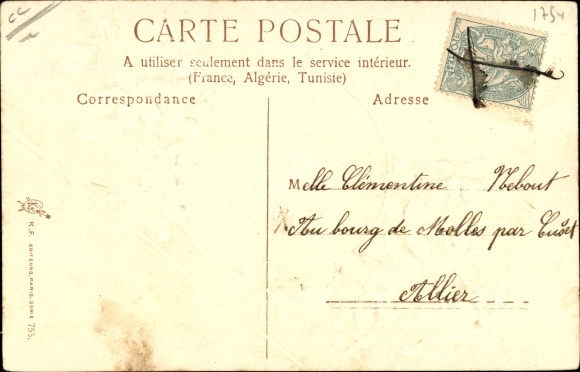 1754
CARTE POSTALE
A utiliser seulement dans le service intérieur.
(France, Algérie, Tunisie)
Correspondance
Adresse
Melle Clémentine Nebout
Au bourg de Molles par Cusset
Allier
K.F. EDITEURS, PARIS, SÉRIE 755,